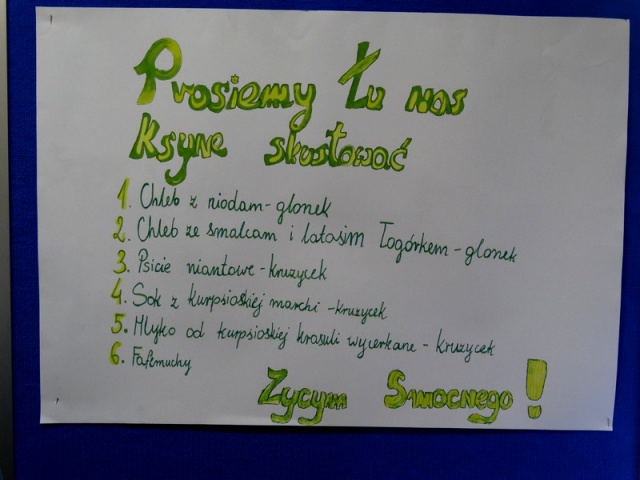 Prosiemy Łu nas
Ksyne skustować
1. Chleb z niodam - glonek
2. Chleb ze smalcam i latosim łogórkem - glonek
3. Psicie niantowe - kruzycek
4. Sok z kurpsioskiej marchi - kruzycek
5. Mlyko od kurpsioskiej krasuli wycierkane - kruzycek
6. Fafernuchy
Zycym Smocnego!